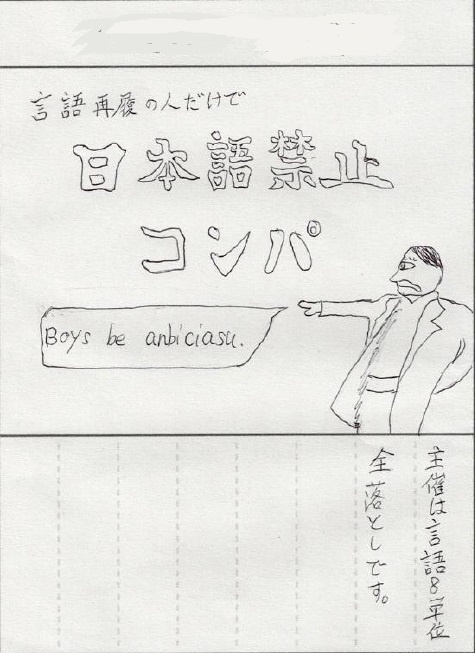 言語再履の人だけで
日本語禁止
コンパ
Boys be anbiciasu.
主催は言語8単位
全落としです。